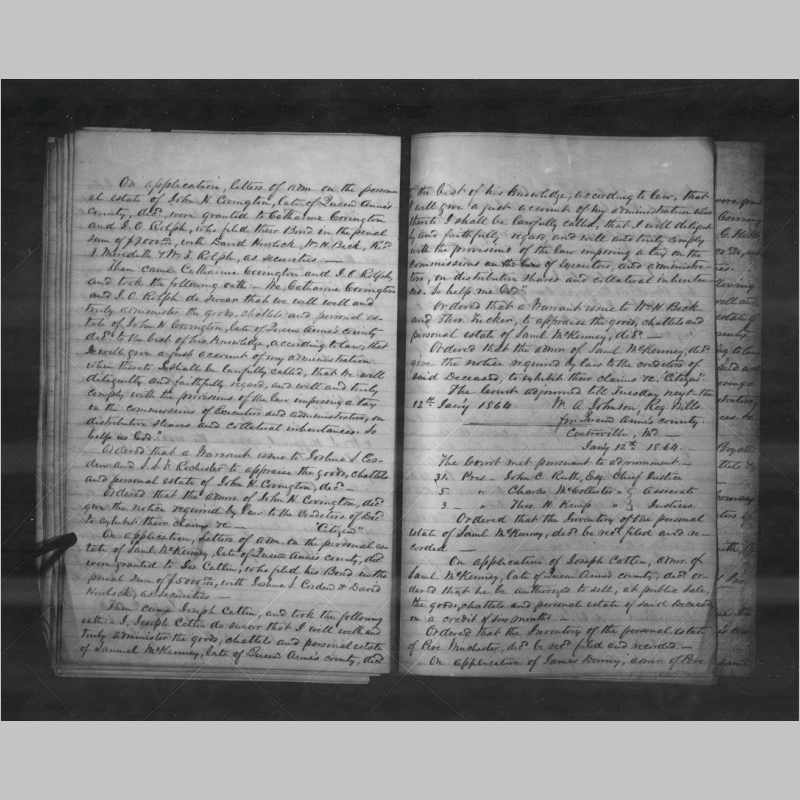 On application, letters of adm on the person-
al estate of John H. Covington, late of Queen Anne's
County, decd. were granted to Catharine Covington
and J. O. Ralph, who filed their Bond in the penal
Sum of $ with David Husbck, Wm H. Beck,
J. Meredith & Wm J. Ralph, as securities —
Then came Catharine Covington and J. O. Ralph,
and took the following oath — We, Catharine Covington
and J. O. Ralph do swear that we will well and
truly administer the goods, chattels and personal es-
tate of John H. Covington, late of Queen Anne's county
decd. to the best of his knowledge, according to law, that
will give a just account of my administration
when thereto I shall be lawfully called, that we will
diligently and faithfully regard, and well and truly
comply with the provisions of the law imposing a tax
on the commissions of Executors and administrators, on
distributive shares and collateral inheritances. So
help us God."
Ordered that a Warrant issue to Joshua S. Cor-
den and S. S. Rochester to appraise the goods, chattels
and personal estate of John H. Covington, decd. —
Ordered that the admrs of John H. Covington, decd.
give the notice required by law to the Creditors of
to exhibit their claims &c — "Citizen"
On application, letters of adm on the personal es-
tate of Saml McKenney, late of Queen Anne's county, decd
were granted to Jos Catlin, who filed his Bond in the
penal sum of $5000, with Joshua S. Corden & David
as securities —
Then came Joseph Catlin, and took the following
oath: I, Joseph Catlin do swear that I will well and
truly administer the goods, chattels and personal estate
of Samuel McKenney, late of Queen Anne's county, decd
to the best of his knowledge, according to law, that
I will give a just account of my administration when
thereto I shall be lawfully called, that I will diligent-
ly and faithfully regard, and will and truly comply
with the provisions of the law imposing a tax on the
commissions of Executors, and administra-
tors, on distributive shares and collateral inheritan-
ces. So help me God."
Ordered that a Warrant issue to Wm H. Beck
and Thos. Tucker, to appraise the goods, chattels and
personal estate of Saml McKenney, decd. —
Ordered that the admr of Saml McKenney, decd
give the notice required by law to the creditors of
said deceased, to exhibit their claims &c. "Citizen"
The Court adjourned till Tuesday next the
12th Jan'y 1864 W. A. Johnson, Reg. Wills
for Queen Anne's county.
Centreville, Md —
Jan'y 12th 1864.
The Court met pursuant to adjournment —
31. Pres — John C. Ruth, Esq Chief Justice
5 " Charles McCollister " } Associate
3 — " Thos. H. Kemp " } Justices
Ordered that the Inventory of the personal
estate of Saml McKenney, decd be recd filed and re-
corded —
On application of Joseph Catlin, admr. of
Saml McKenney, late of Queen Anne's county, decd or-
dered that he be authorized to sell, at public sale,
the goods, chattels and personal estate of said deceased
on a credit of six months —
Ordered that the Inventory of the personal estate
of decd. be recd filed and recorded —
On application of James admr. of